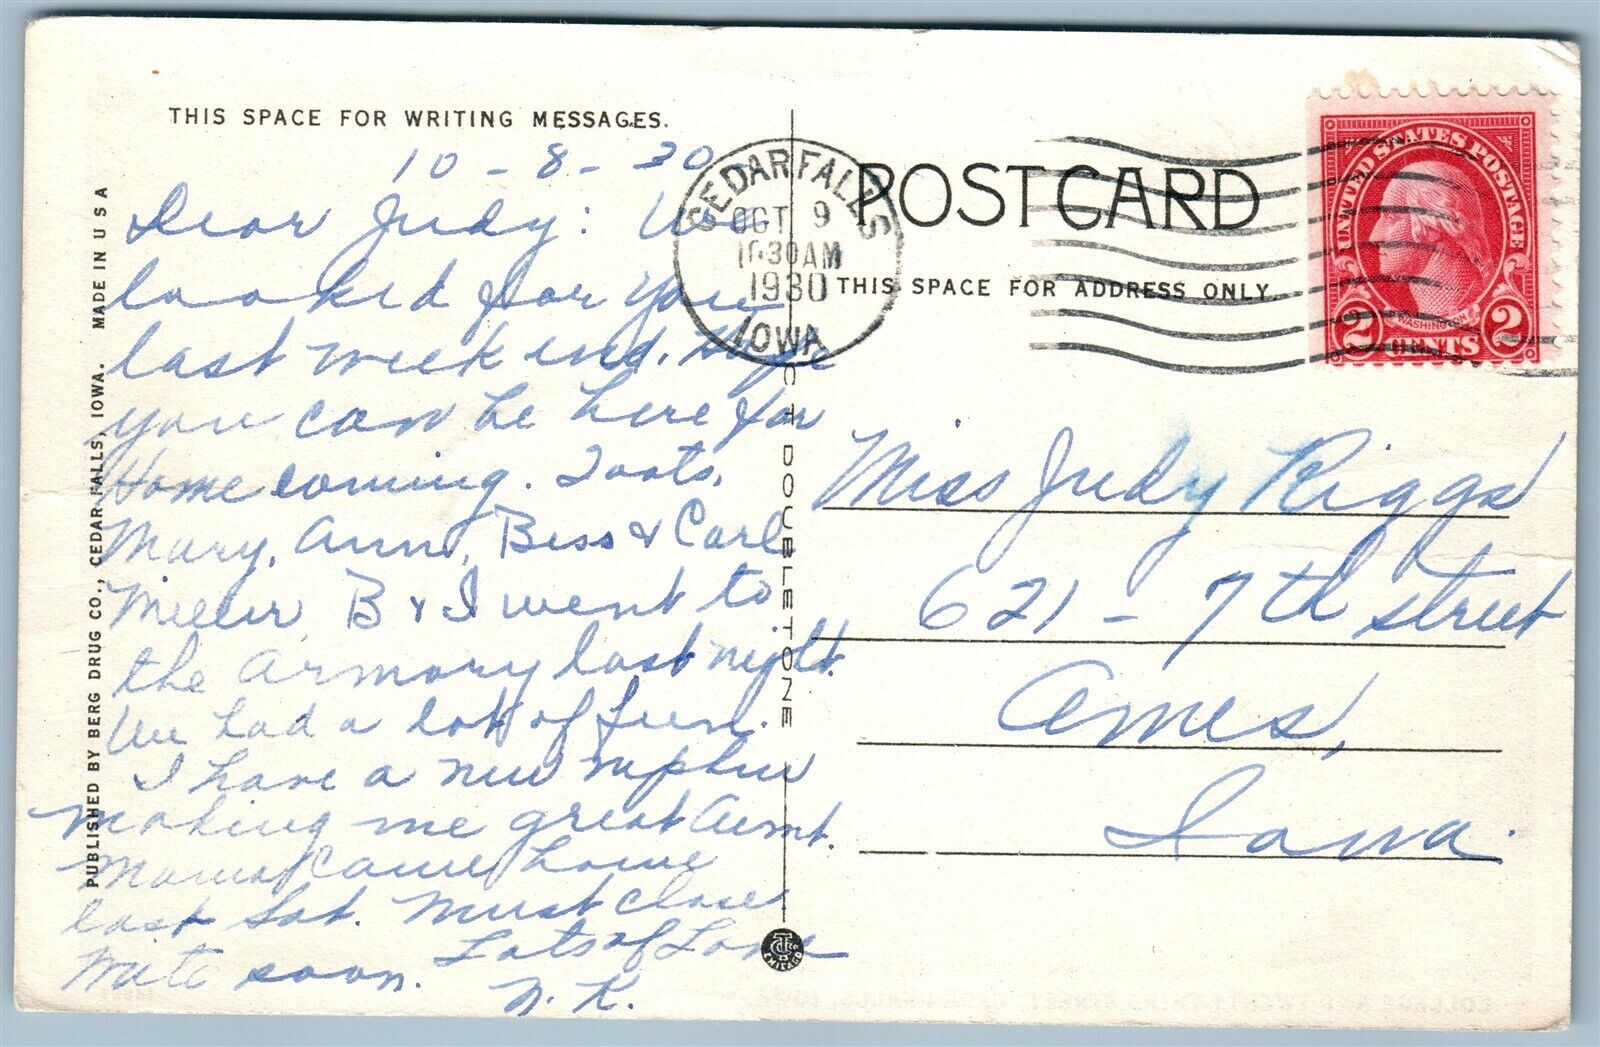 THIS SPACE FOR WRITING MESSAGES.
10 - 8 - 30
Dear Judy: We
looked for you
last week end. Hope
you can be here for
Home coming. Toots,
Mary, Ann, Bess & Carl
Miller, B & I went to
the armory last night.
We had a lot of fun.
I have a new nephew
making me great Aunt.
Mama came home
last Sat. Must close
Write soon. Lots of Love
N. K.
PUBLISHED BY BERG DRUG CO., CEDAR FALLS, IOWA. MADE IN U S A
CEDAR FALLS
OCT 9
10 30 AM
1930
IOWA
POST CARD
THIS SPACE FOR ADDRESS ONLY.
UNITED STATES POSTAGE
WASHINGTON
2 CENTS 2
CT DOUBLETONE
Miss Judy Riggs
621 - 7th street
Ames,
Iowa.
CHICAGO